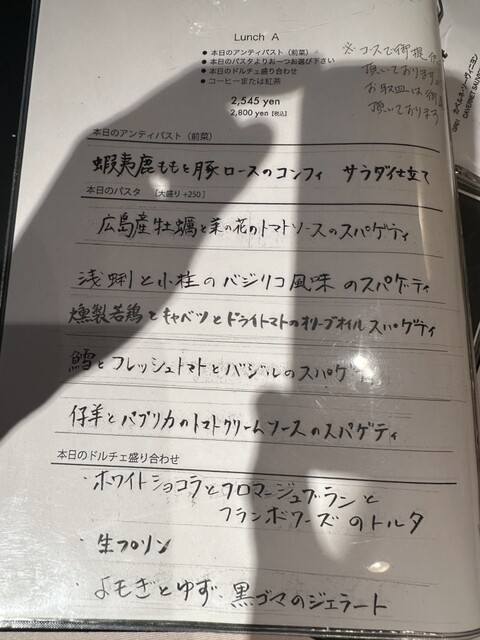 Lunch A
● 本日のアンティパスト（前菜）
● 本日のパスタよりお一つお選び下さい
● 本日のドルチェ盛り合わせ
● コーヒーまたは紅茶
2,545 yen
2,800 yen [税込]
※コースで御提供
頂いております
お取皿は
頂いております
CABERNET
本日のアンティパスト（前菜）
蝦夷鹿ももと豚ロースのコンフィ サラダ仕立て
本日のパスタ [大盛り +250]
広島産牡蠣と菜の花のトマトソースのスパゲティ
浅蜊と小柱のバジリコ風味のスパゲティ
燻製若鶏とキャベツとドライトマトのオリーブオイルスパゲティ
鱈とフレッシュトマトとバジルのスパゲ
仔羊とパプリカのトマトクリームソースのスパゲティ
本日のドルチェ盛り合わせ
・ホワイトショコラとフロマージュブランと
フランボワーズのトルタ
・生プリン
・よもぎとゆず、黒ゴマのジェラート